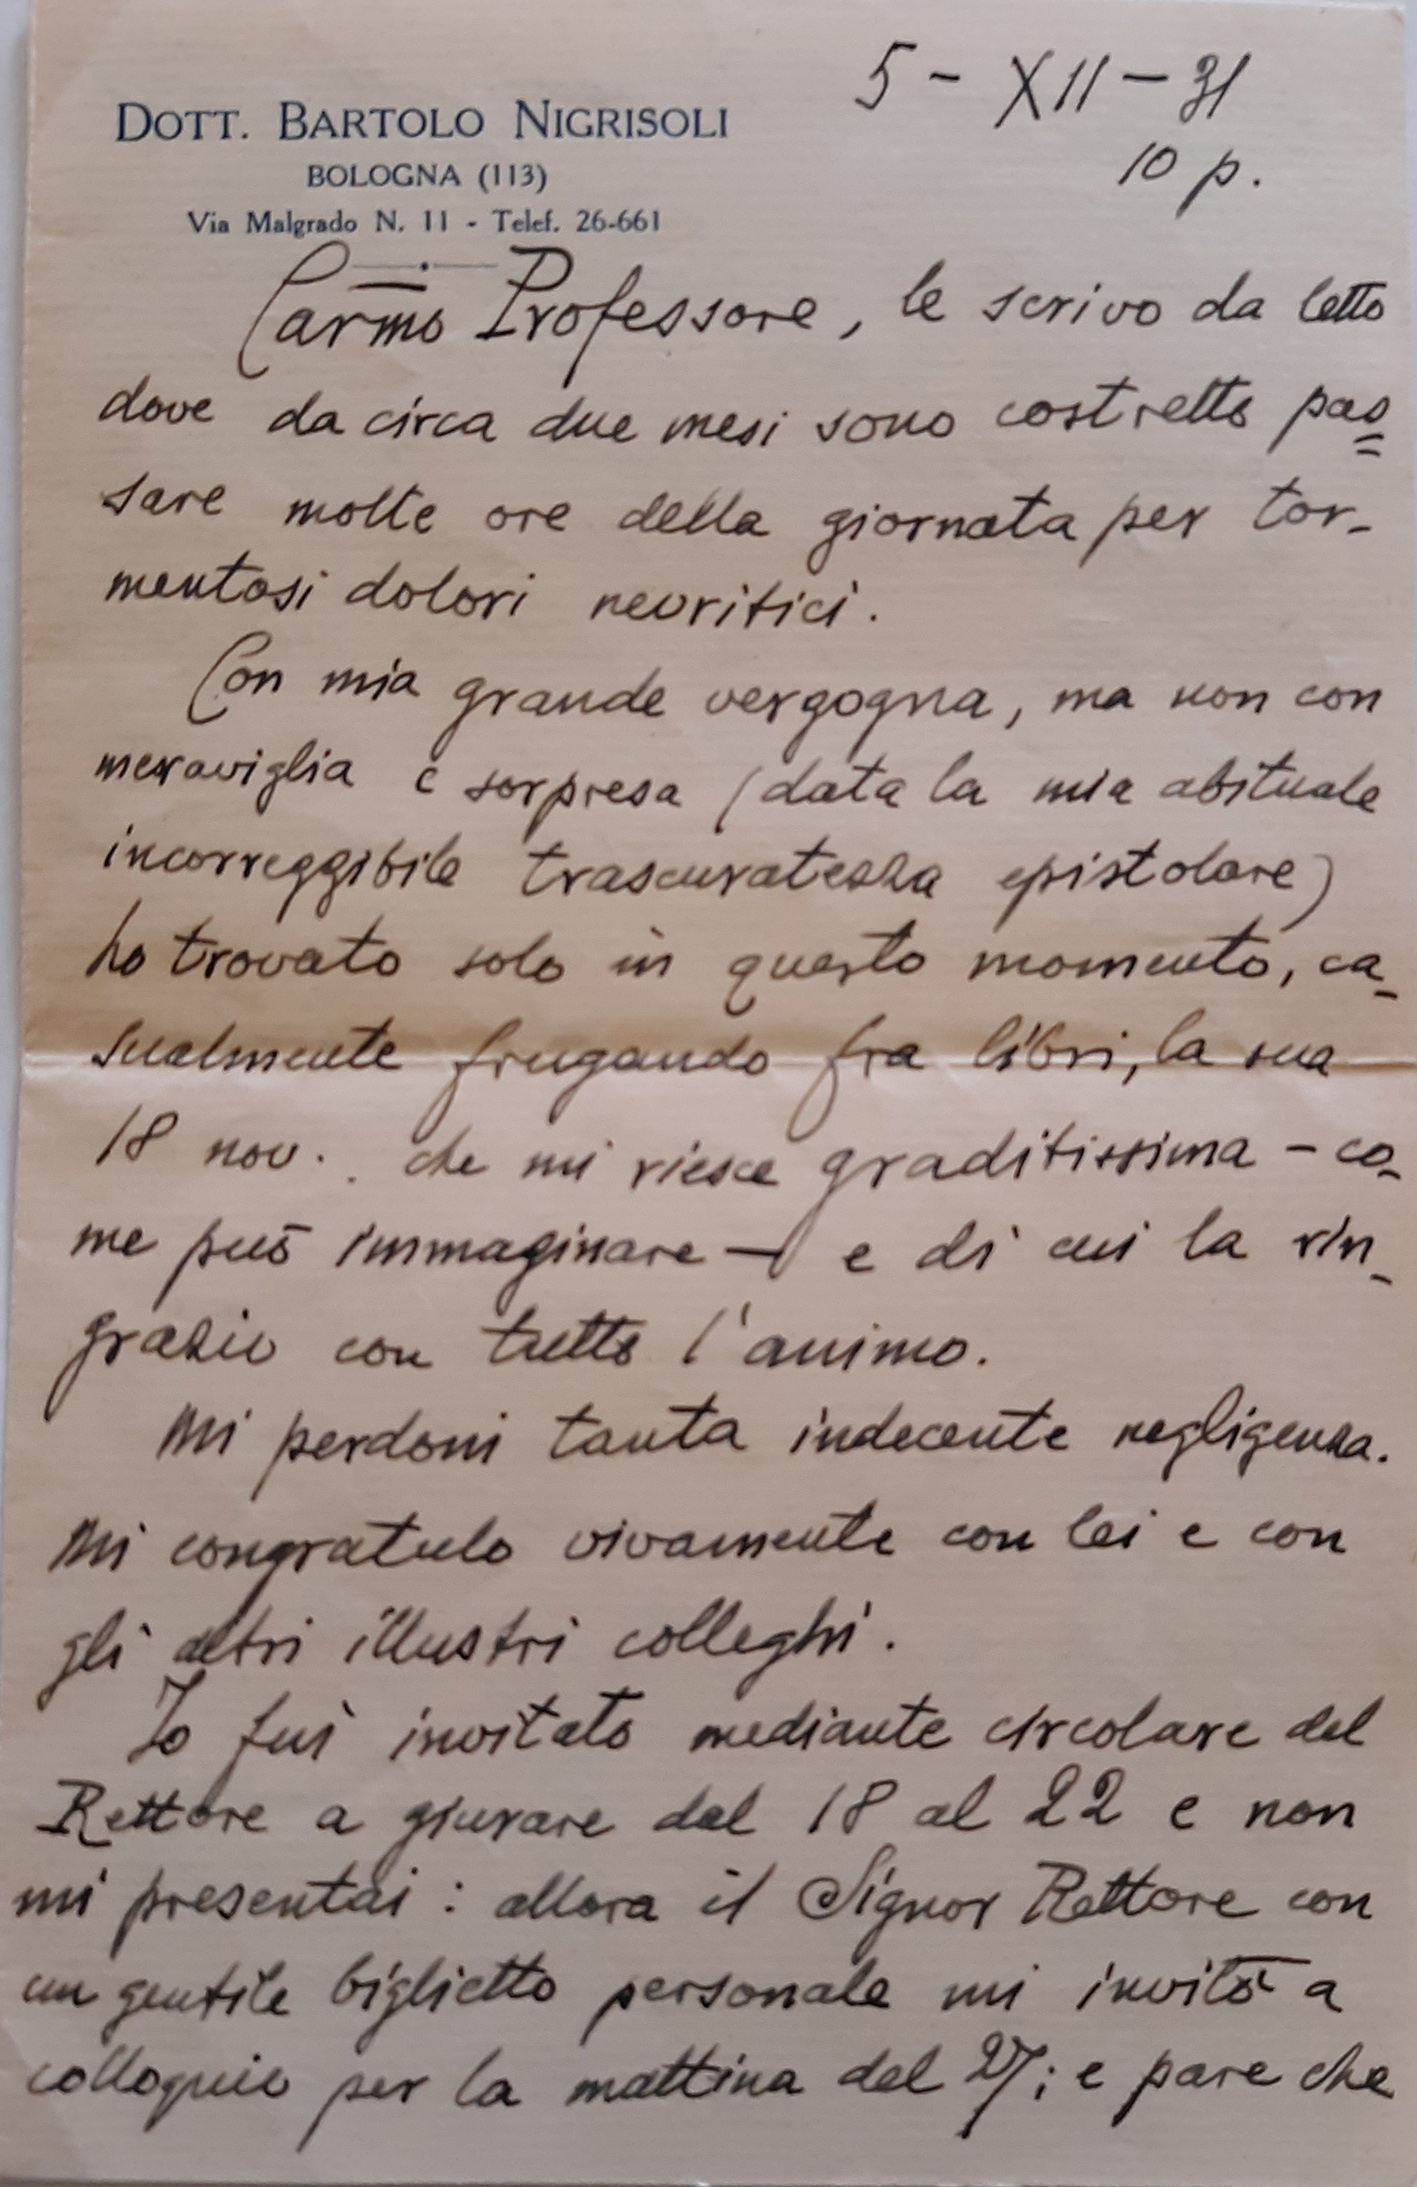 5 - XII - 31
10 p.
DOTT. BARTOLO NIGRISOLI
BOLOGNA (113)
Via Malgrado N. 11 - Telef. 26-661
Carmo Professore, le scrivo da letto
dove da circa due mesi sono costretto pas=
sare molte ore della giornata per tor-
mentosi dolori nevritici.
Con mia grande vergogna, ma non con
meraviglia e sorpresa (data la mia abituale
incorreggibile trascuratezza epistolare)
ho trovato solo in questo momento, ca-
sualmente frugando fra libri, la sua
18 nov. che mi riesce graditissima - co-
me può immaginare - e di cui la rin-
grazio con tutto l'animo.
Mi perdoni tanta indecente negligenza.
Mi congratulo vivamente con lei e con
gli altri illustri colleghi.
Io fui invitato mediante circolare del
Rettore a giurare dal 18 al 22 e non
mi presentai: allora il Signor Rettore con
un gentile biglietto personale mi invitò a
colloquio per la mattina del 27; e pare che